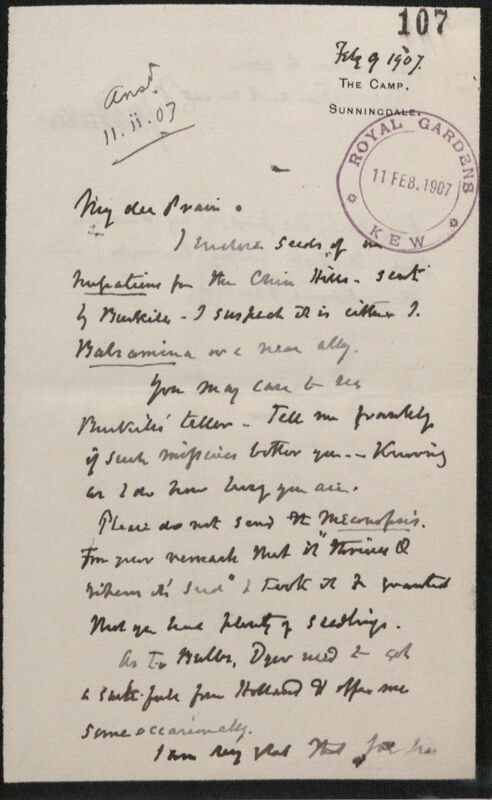 107
Feb 9 1907.
THE CAMP,
SUNNINGDALE.
Ansd.
11. ii. 07
ROYAL GARDENS
11 FEB. 1907
KEW
My dear Prain.
I enclose seeds of an
Impatiens from the Chin Hills - sent
by Burkill - I suspect it is either I.
Balsamina or a near ally.
You may care to see
Burkill's letter - Tell me frankly
if such missives bother you - Knowing
as I do how busy you are.
Please do not send the Meconopsis.
From your remark that it "thrives &
ripens its seed" I took it for granted
that you had plenty of seedlings.
As to Bulbs, Dyer used to get
a from Holland & offer me
some occasionally.
I am very glad that has